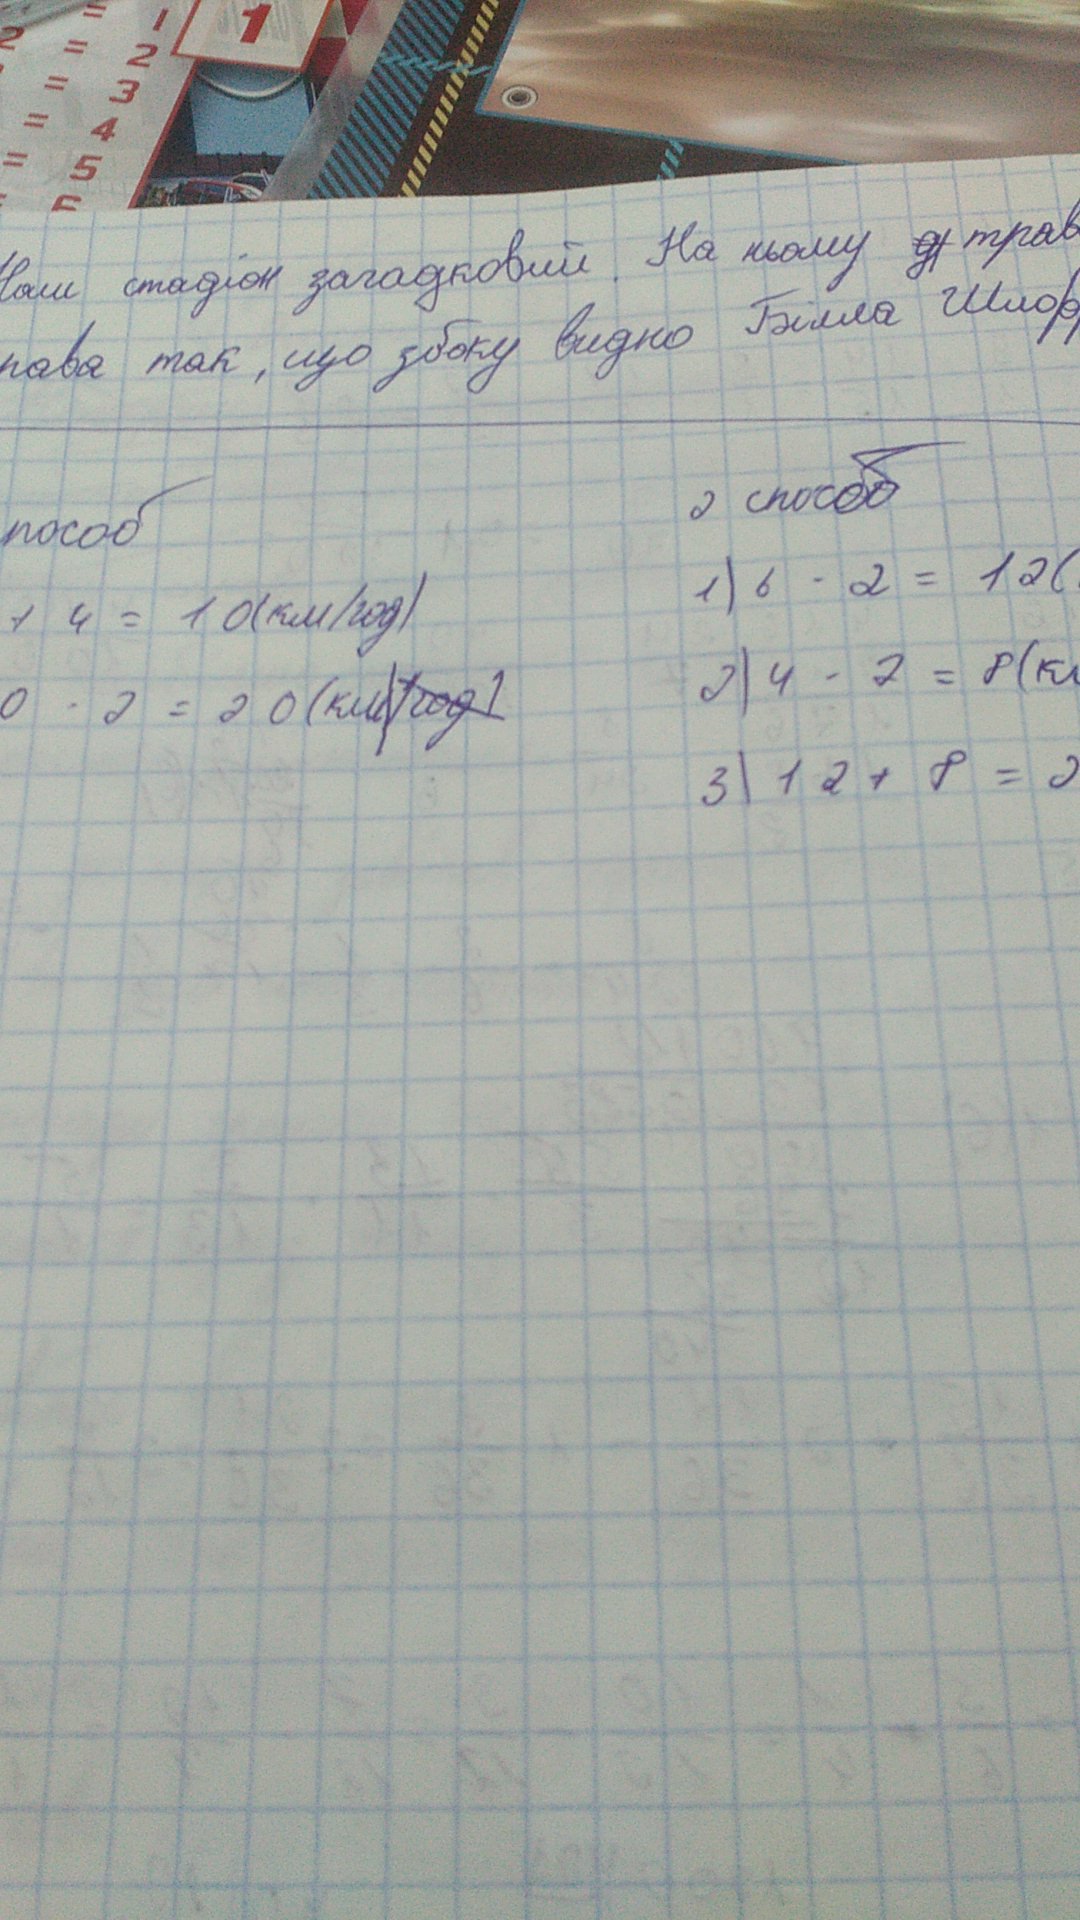 = 1
2 = 2
= 3
= 4
= 5
= 6
1
Наш стадіон загадковий. На ньому трав
рава так, що збоку видно Білла Шифр
пособ
2 способ
+ 4 = 10(км/год)
1) 6 · 2 = 12(
0 · 2 = 20(км)
2) 4 · 2 = 8(км
3) 12 + 8 = 2